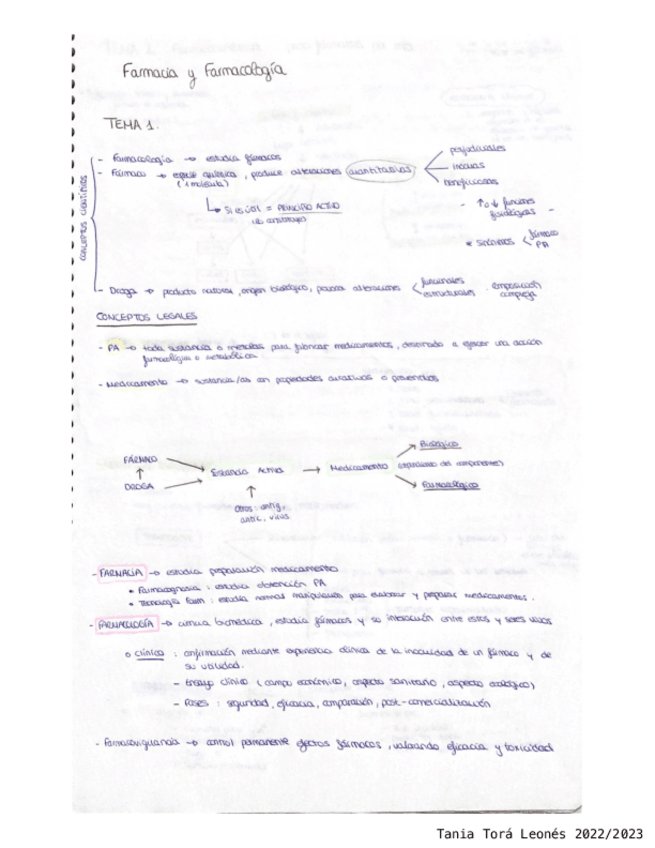 Farmacia y Farmacología
TEMA 1.
conceptos científicos
- Farmacología → estudia fármacos
- Fármaco → especie química, produce alteraciones cuantitativas
(1 molécula)
perjudiciales
inocuas
beneficiosas
↳ Si es útil = PRINCIPIO ACTIVO
- ↑ o ↓ funciones
fisiológicas -
* Sinónimos < fármaco
PA
- Droga → producto natural, origen biológico, provoca alteraciones < funcionales
estructurales · composición
compleja
CONCEPTOS LEGALES
- PA → toda sustancia o mezclas para fabricar medicamentos, destinado a ejercer una acción
farmacológica o metabólica
- Medicamento → sustancia/as con propiedades curativas o preventivas
FÁRMACO
↑
DROGA
Sustancia Activa → Medicamento (dependiendo del componentes)
Biológico
Farmacológico
↑
Otros: antig,
antic, virus
- FARMACIA → estudia preparación medicamento
* Farmacognosia : estudia obtención PA
* Tecnología Farm : estudia normas manipulación para elaborar y preparar medicamentos.
- FARMACOLOGÍA → ciencia biomédica, estudia fármacos y su interacción entre estos y seres vivos
o clínica : confirmación mediante experiencia clínica de la inocuidad de un fármaco y de
su utilidad.
- Ensayo clínico (campo económico, aspecto sanitario, aspecto ecológico)
- Fases : seguridad, eficacia, comparación, post-comercialización
- Farmacovigilancia → control permanente efectos fármacos, valorando eficacia y toxicidad
Tania Torá Leonés 2022/2023